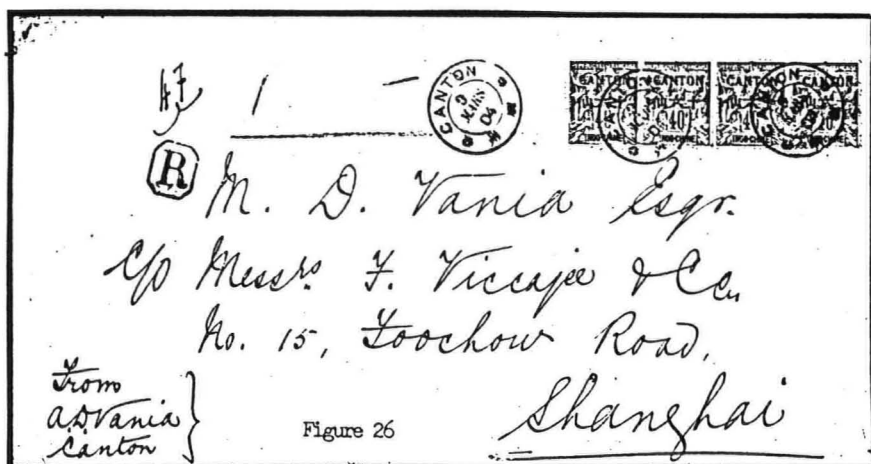 47
1 —
CANTON
9
MARS
04
CANTON CANTON CANTON CANTON
40
INDO-CHINE
R
M. D. Vania Esqr.
C/o Messrs. F. Viccajee & Co.
No. 15, Foochow Road,
Shanghai
From
A.D. Vania
Canton
Figure 26